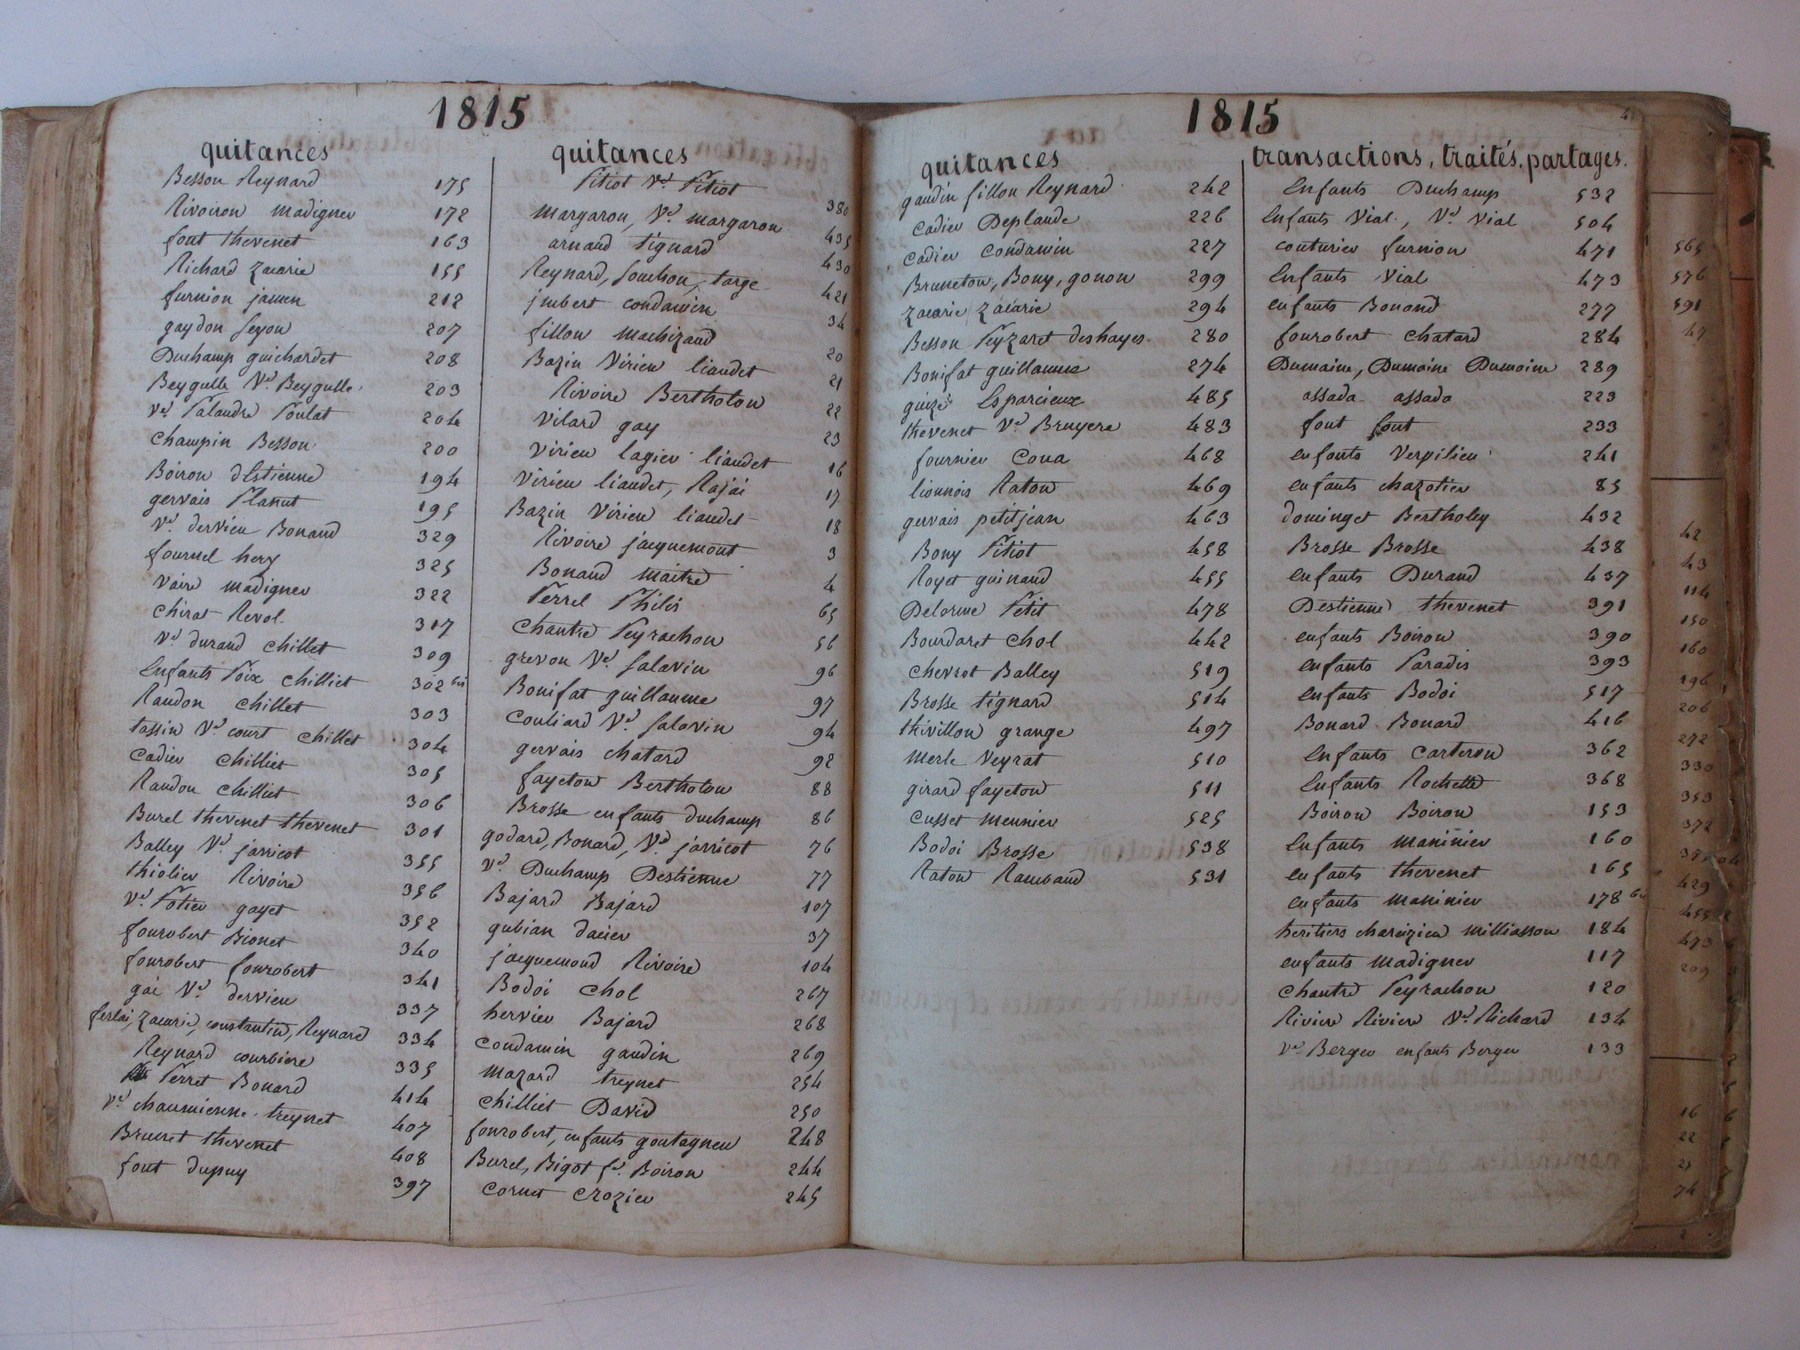 1815
quitances
Besson Reynard 175
Rivoiron madignier 172
font thevenet 163
Richard zacarie 155
furnion jamen 212
gaydon seyon 207
Duchamp guichardet 208
Beygulle Ve. Beygulle 203
ve. Palandre Poulat 204
champin Besson 200
Boiron dEstienne 194
gervais Planut 195
ve. dervieu Bonand 329
fournel hery 325
vaire madignier 322
chirat Revol 317
ve. durand chillet 309
Enfants Poix chilliet 302 bis
Randon chillet 303
tassin ve. court chillet 304
cadier chilliet 305
Randon chilliet 306
Burel thevenet thevenet 301
Balley Ve. jarricot 355
thiolier Rivoire 356
ve. Potier gayet 352
fourobert Bionet 340
fourobert fourobert 341
gai Ve. dervieu 337
ferlai, zacarie, constantin, Reynard 334
Reynard courbiere 335
Perret Bonard 414
ve. chaumienne treynet 407
Brunet thevenet 408
font dupuy 397
quitances
Pitiot Ve. Pitiot 380
margaron, Ve. margaron 435
arnaud tignard 430
Reynard, Souchon, targe 421
jmbert condamin 34
fillon machizaud 20
Bazin Virieu liaudet 21
Rivoire Bertholon 22
vilard gay 23
virieu lagier liaudet 16
virieu liaudet, Rajai 17
Bazin Virieu liaudet 18
Rivoire jacquemont 3
Bonand maitre 4
Perrel Philis 65
chantre Peyrachon 56
grevon Ve. salavin 96
Bonifat guillaume 97
couliard Ve. salavin 94
gervais chatard 92
fayeton Bertholon 88
Brosse enfants duchamp 86
godard, Bonard, Ve. jarricot 76
ve. Duchamp Destienne 77
Bajard Bajard 107
gubian dacier 37
jacquemond Rivoire 104
Bodoi chol 267
hervier Bajard 268
condamin gaudin 269
mazard treynet 254
chilliet David 250
fourobert, enfants goutagneu 248
Burel, Bigot fe. Boiron 244
cornet crozier 245
1815
quitances
gaudin fillon Reynard 242
cadier Deplaude 226
cadier condamin 227
Bruneton, Bony, gonon 299
zacarie zacarie 294
Besson Peyzaret deshayes 280
Bonifat guillaume 274
guize Esparcieux 485
thevenet Ve. Bruyere 483
fournier Coua 468
lionnois Raton 469
gervais petitjean 463
Bony Pitiot 458
Royet guinaud 455
Delorme Petit 478
Bourdaret chol 442
chevrot Balley 519
Brosse tignard 514
thivillon grange 497
merle Veyrat 510
girard fayeton 511
cusset meunier 525
Bodoi Brosse 538
Raton Rambaud 531
transactions, traités, partages.
Enfants Duchamp 532
Enfants Vial, Ve. Vial 504
couturier furnion 471
Enfants Vial 473
enfants Bonand 277
fourobert chatard 284
Dumaine, Dumaine Dumaine 289
assada assada 223
font font 233
enfants Verpilieu 241
enfants chazotier 85
dominget Bertholey 432
Brosse Brosse 438
Enfants Durand 437
Destienne thevenet 391
enfants Boiron 390
enfants Paradis 393
enfants Bodoi 517
Bonard Bonard 416
Enfants carteron 362
Enfants Rochette 368
Boiron Boiron 153
Enfants maninier 160
enfants thevenet 165
enfants maninier 178 bis
heritiers chareizieu milliasson 184
enfants madignier 117
chantre Peyrachon 120
Riviere Riviere Ve. Richard 134
ve. Berger enfants Berger 133
565
576
591
47
42
43
114
150
160
196
206
272
330
353
372
429
455
473
209
16
22
25
74